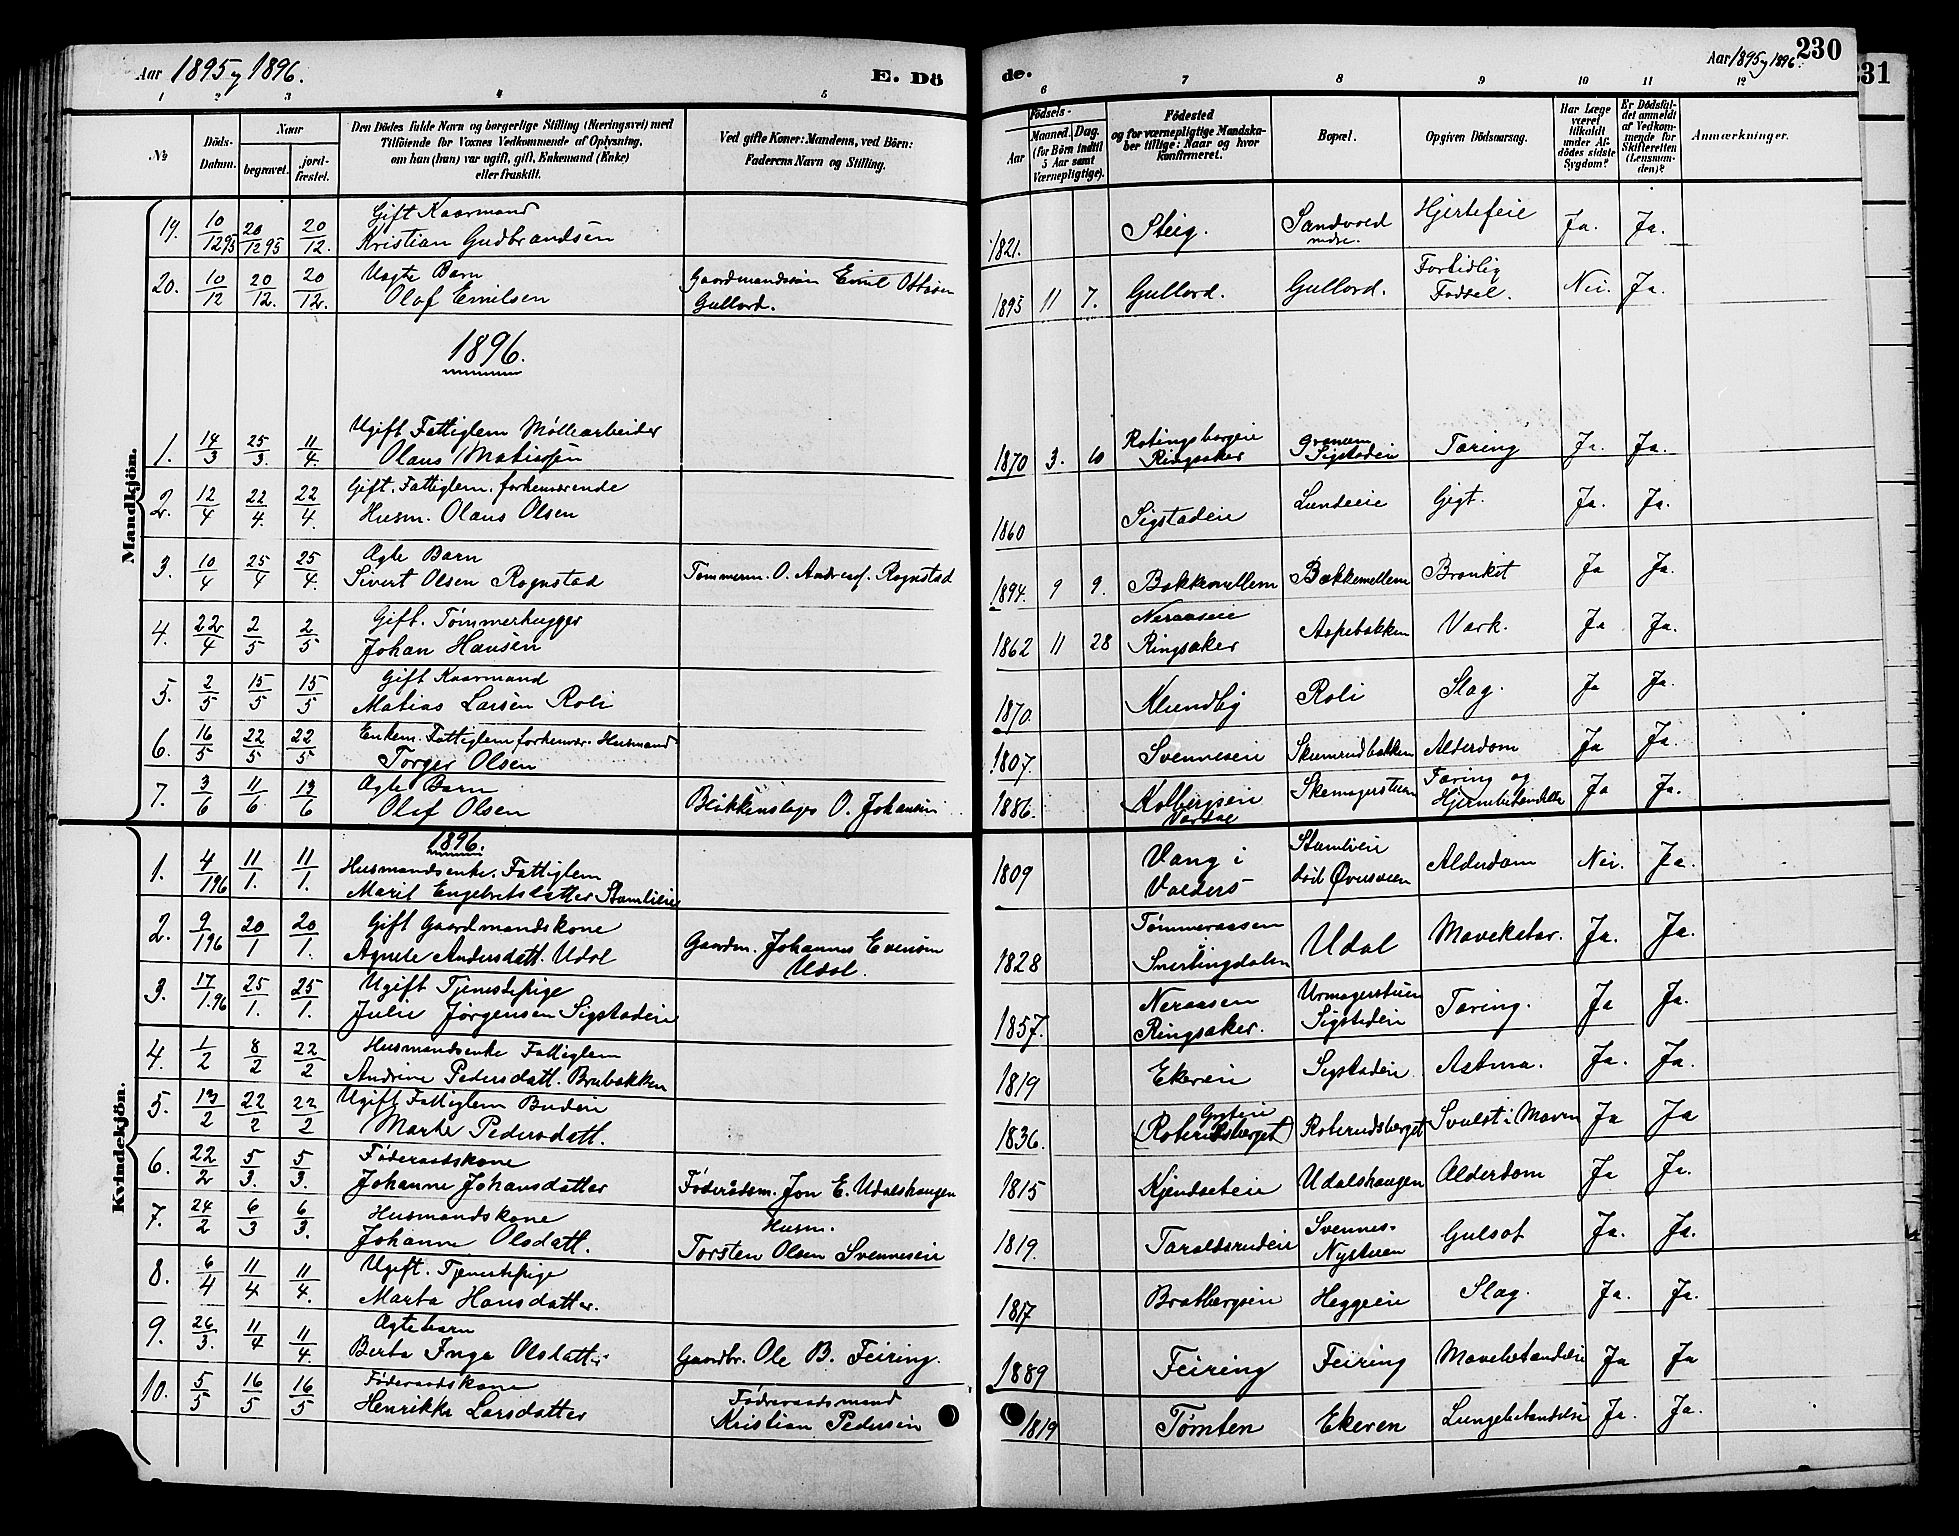 Aar 1895 og 1896.
E. Dö
de.
Aar 1895 og 1896.
230
231
1 2 3 4 5 6 7 8 9 10 11 12
№
Döds-Datum.
Naar
begravet.
jordfæstet.
Den Dödes fulde Navn og borgerlige Stilling (Næringsvei) med
Tilföiende for Voxnes Vedkommende af Oplysning,
om han (hun) var ugift, gift, Enkemand (Enke)
eller fraskilt.
Ved gifte Koner: Mandens, ved Börn:
Faderens Navn og Stilling.
Födsels-
Aar
Maaned. Dag.
(for Börn indtil
5 Aar samt
Værnepligtige).
Födested
og for værnepligtige Mandskaber tillige: Naar og hvor
konfirmeret.
Bopæl.
Opgiven Dödsaarsag.
Har Læge
været
tilkaldt
under Afdödes sidste
Sygdom?
Er Dödsfaldet anmeldt
af Vedkommende for
Skifteretten
(Lensmanden)?
Anmærkninger.
Mandkjön.
19. 10/12 95 20/12 95 20/12. Gift Kaarmand
Kristian Gudbrandsen 1821. Steig. Sandvold nedre. Hjertefeil Ja. Ja.
20. 10/12 20/12. 20/12. Uægte Barn
Olaf Emilsen Gaardmandssøn Emil Ottesen
Gullord. 1895 11 7. Gullord. Gullord. Fortidlig
Fødsel. Nei. Ja.
1896.
1. 14/3 25/3. 11/4. Ugift Fattiglem Møllearbeider
Olaus Matiassen 1870 3. 10 Ringsaker Sigstadeie Tæring Ja. Ja.
2. 12/4 22/4. 22/4. Gift. Fattiglem. forhenværende
Husm. Olaus Olsen 1860 Sigstadeie Lundeeie Gigt. Ja. Ja.
3. 10/4 25/4 25/4. Ægte Barn
Sivert Olsen Rognstad Tømmerm. O. Andreas. Rognstad 1894. 9 9. Bakkemellem Bækkemellem Bronkit Ja Ja.
4. 22/4 2/5 2/5 Gift. Tømmerhugger
Johan Hansen 1862 11 28 Neraaseie
Ringsaker Aspebakken Værk. Ja Ja.
5. 2/5 15/5 15/5 Gift Kaarmand
Matias Larsen Roli 1870. Klundby Roli Slag. Ja Ja.
6. 16/5 22/5 22/5 Enkem. Fattiglem forhenvær. Husmand
Torger Olsen 1807. Svenneseie Skumrudbakken Alderdom Ja Ja.
7. 3/6 11/6 13/6 Ægte Barn
Olaf Olsen Blikkenslager O. Johansen 1886. Kolbergseie
Vardal Skomagerstuen Tæring og
Hjernebetændelse Ja Ja.
Kvindekjön.
1896.
1. 4/1 96 11/1. 11/1. Husmandsenke. Fattiglem
Marit Engebretsdatter Stamlieie 1809 Vang i
Valders Stamlieie
Øversveen Alderdom Nei. Ja.
2. 9/1 96 20/1 20/1. Gift Gaardmandskone
Agnete Andersdatt. Udal Gaardm. Johannes Evensen
Udal. 1828 Tømmeraasen
Snertingdalen Udal Mavekatar. Ja. Ja.
3. 17/1.96 25/1. 25/1. Ugift Tjenestepige
Julie Jørgensen Sigstadeie 1857. Neraasen
Ringsaker. Urmagerstuen
Sigstadeie Tæring. Ja Ja.
4. 1/2 8/2 22/2 Husmandsenke Fattiglem
Andrine Pedersdatt. Brubakken 1819 Ekereie Sigstadeie Astma. Ja. Ja.
5. 13/2 22/2 22/2 Ugift Fattiglem Budeie
Marte Pedersdatt. 1836. Gryteeie
(Roterudsberget) Roterudsberget Svulst i Maven Ja Ja
6. 22/2 5/3. 5/3. Føderaadskone
Johanne Johansdatter Føderådsm. Jon E. Udalshaugen 1815 Kjendseteie Udalshaugen Alderdom Ja Ja.
7. 24/2 6/3 6/3. Husmandskone
Johanne Olsdatt. Husm.
Torsten Olsen Svenneseie 1819. Taraldsrudeie Svennes-
Nystuen Gulsot Ja. Ja.
8. 6/4 11/4 11/4. Ugift. Tjenestepige
Marta Hansdatter. 1817 Bratbergseie Heggeeie Slag. Ja. Ja.
9. 26/3. 11/4 11/4. Ægtebarn
Berta Inga Olsdatter Gaardbr. Ole B. Feiring. 1889 Feiring Feiring Mavebetændelse Ja Ja
10. 5/5 16/5 16/5 Føderaadskone
Henrikke Larsdatter Føderaadsmand
Kristian Pedersen 1819 Tømten Ekeren Lungebetændelse Ja. Ja.